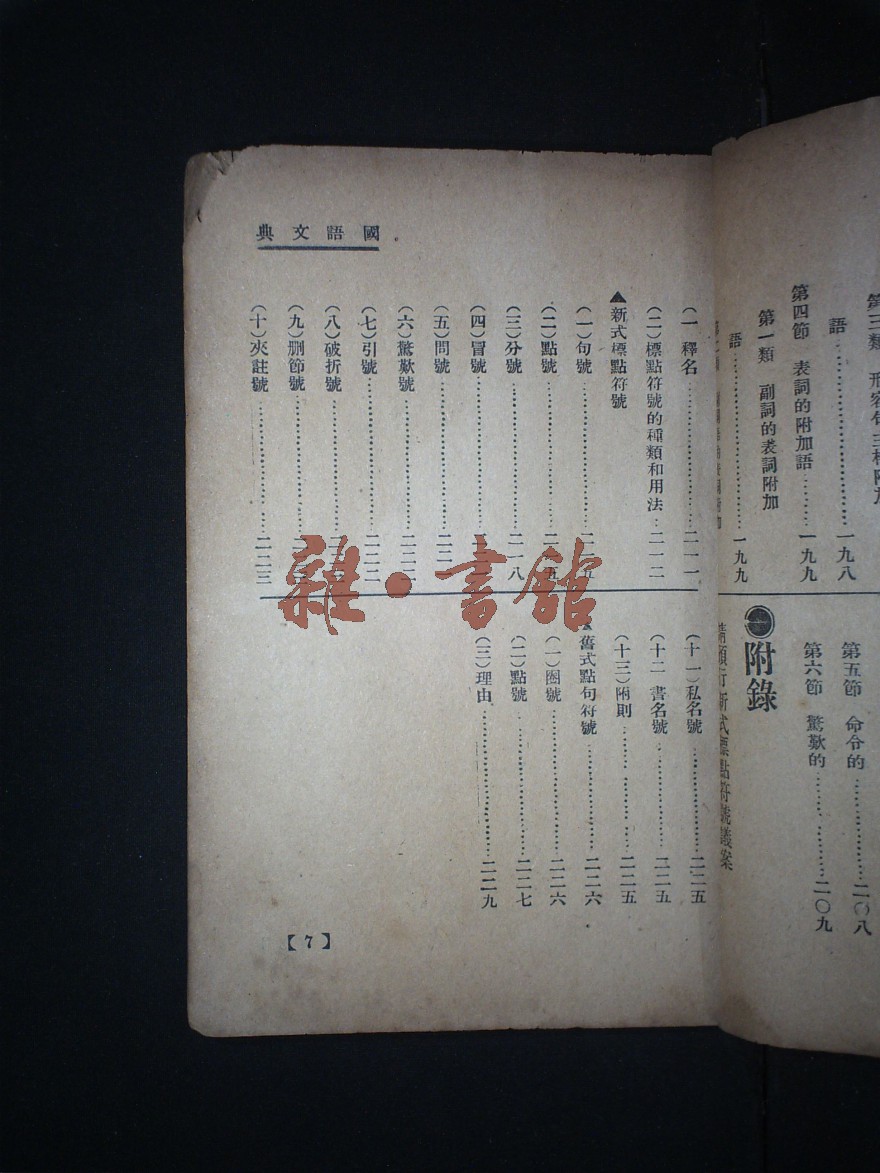 第三類
語……………一九八
第四節 表詞的附加語……一九九
第一類 副詞的表詞附加
語……………一九九
第五節 命令的……………二〇八
第六節 驚歎的……………二〇九
附錄
請頒行新式標點符號議案
國語文典
(一)釋名……………二一一
(二)標點符號的種類和用法…二一二
▲新式標點符號
(一)句號……………二一五
(二)點號……………二一五
(三)分號……………二一八
(四)冒號……………
(五)問號……………
(六)驚歎號……………
(七)引號……………
(八)破折號……………
(九)刪節號……………
(十)夾註號……………二二三
(十一)私名號……………二二五
(十二 書名號……………二二五
(十三)附則……………二二五
▲舊式點句符號……………二二六
(一)圈號……………二二六
(二)點號……………二二七
(三)理由……………二二九
【7】
雜·書館